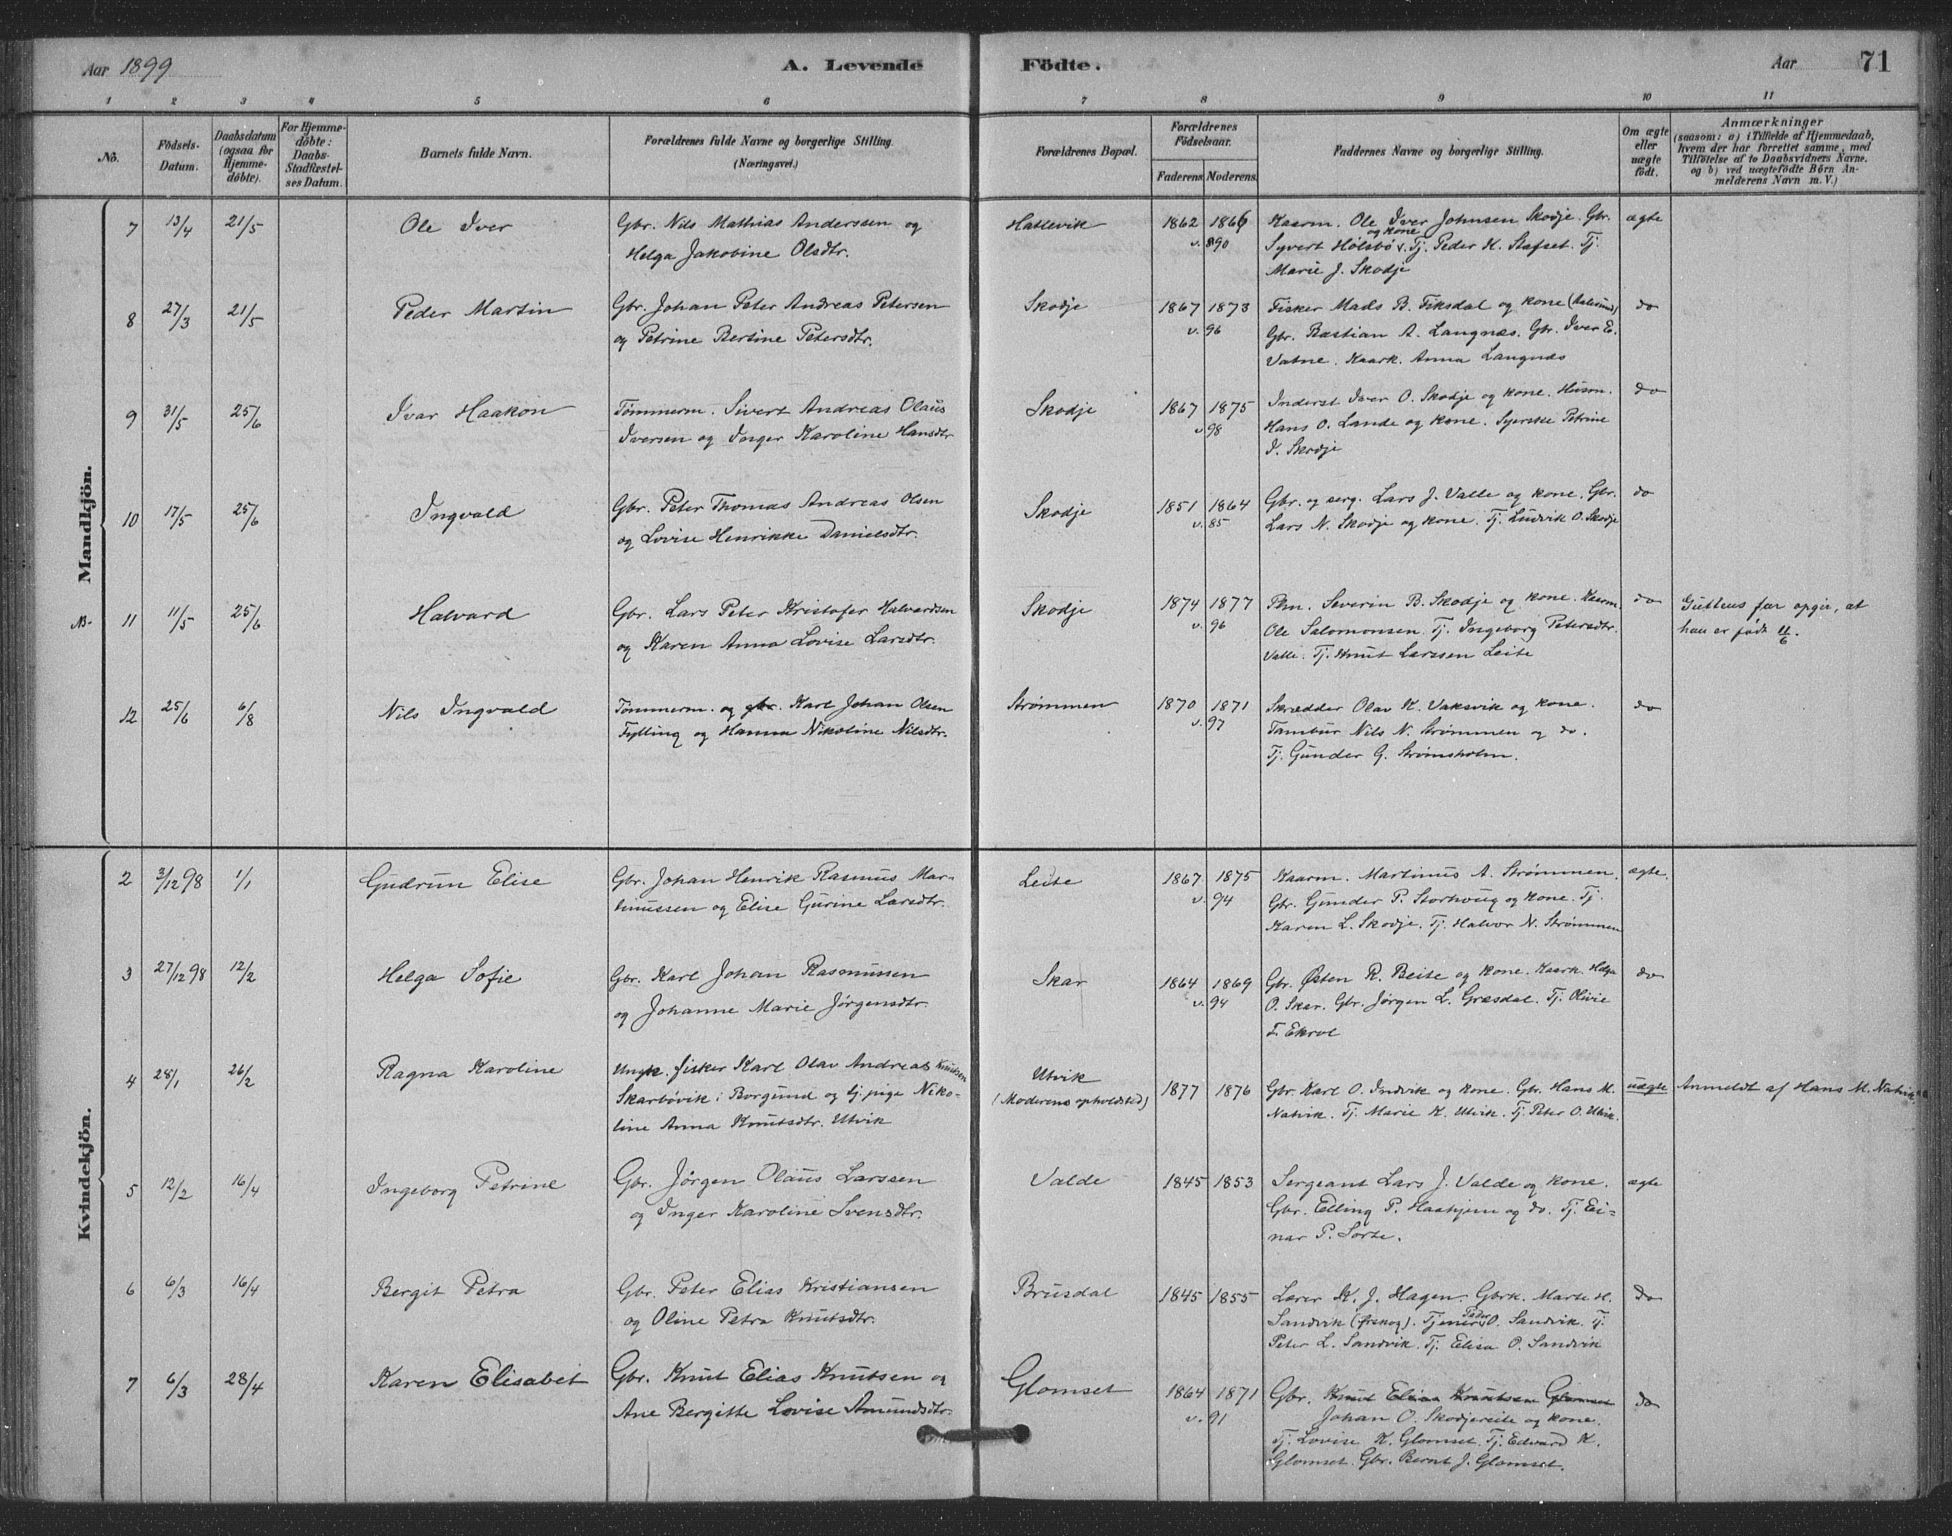 Aar 1899 A. Levende Födte. Aar 71
1 2 3 4 5 6 7 8 9 10 11
No.
Födsels-Datum.
Daabsdatum (ogsaa for Hjemme-döbte).
For Hjemme-döbte: Daabs-Stadfæstel-ses Datum.
Barnets fulde Navn.
Forældrenes fulde Navne og borgerlige Stilling. (Næringsvei.)
Forældrenes Bopæl.
Forældrenes Födselsaar.
Faderens Moderens
Faddernes Navne og borgerlige Stilling.
Om ægte eller uægte födt.
Anmærkninger
(saasom: a) i Tilfælde af Hjemmedaab,
hvem der har forrettet samme, med
Tilföielse af to Daabsvidners Navne.
og b) ved uægtefödte Börn An-
melderens Navn m. V.)
Mandkjön.
7 13/4 21/5 Ole Iver
Gbr. Nils Mathias Anderssen og
Helga Jakobine Olsdtr.
Hattevik 1862 1866
v. 890
Kaarm. Ole Iver Johnsen Skodje. Gbr.
Syvert Hølsbö og kone. Tj. Peder K. Stafset. Tj.
Marie J. Skodje
ægte
8 27/3 21/5 Peder Martin
Gbr. Johan Peter Andreas Petersen
og Petrine Bertine Petersdtr.
Skodje 1867 1873
v. 96
Fisker Mads B. Fiksdal og kone (Aalesund)
Gbr. Bastian A. Langnæs. Gbr. Iver E.
Vatne. Kaark. Anna Langnæs
do
9 31/5 25/6 Ivar Haakon
Tømmerm. Sivert Andreas Olaus
Iversen og Inger Karoline Hansdtr
Skodje 1867 1875
v. 98
Inderst Iver O. Skodje og kone. Husm.
Hans O. Lande og kone. Syerske Petrine
I. Skodje
do
10 17/5 25/6 Ingvald
Gbr. Peter Thomas Andreas Olsen
og Lovise Henrikke Danielsdtr.
Skodje 1851 1864
v. 85
Gbr. og serg. Lars J. Valle og kone. Gbr.
Lars N. Skodje og kone. Tj. Ludvik O. Skodje
do
NB. 11 11/5 25/6 Halvard
Gbr. Lars Peter Kristofer Halvardsen
og Karen Anna Lovise Larsdtr.
Skodje 1874 1877
v. 96
Pkn. Severin B. Skodje og kone. Kaarm.
Ole Salomonsen. Tj. Ingeborg Petersdtr.
Valle. Tj. Knut Larssen Leite
do
Guttens far opgir, at
han er født 11/6.
12 25/6 6/8 Nils Ingvald
Tømmerm. og gbr. Karl Johan Olsen
Fylling og Hanna Nikoline Nilsdtr.
Strømmen 1870 1871
v. 97
Skrædder Olav K. Vaksvik og kone.
Tambur Nils N. Strømmen og do.
Tj. Gunder G. Strømsholm.
do
Kvindekjön.
2 3/12 98 1/1 Gudrun Elise
Gbr. Johan Henrik Rasmus Mar-
tinussen og Elise Gurine Larsdtr.
Leite 1867 1875
v. 94
Kaarm. Martinus A. Strømmen.
Gbr. Gunder P. Storhoug og kone. Tj.
Karen L. Skodje. Tj. Halvor N. Strømmen
ægte.
3 27/12 98 12/2 Helga Sofie
Gbr. Karl Johan Rasmussen
og Johanne Marie Jørgensdtr.
Skar 1864 1869
v. 94
Gbr. Østen R. Beite og kone. Kaark. Helga
O. Skar. Gbr. Jørgen L. Græsdal. Tj. Olivie
T. Ekrol
do
4 28/1 26/2 Ragna Karoline
Ungk. fisker Karl Olav Andreas Knutsen
Skarbövik i Borgund og tj. pige Niko-
line Anna Knutsdtr. Utvik
Utvik
(Moderens opholdsted)
1877 1876
Gbr. Karl O. Indvik og kone. Gbr. Hans M.
Natvik. Tj. Marie K. Utvik. Tj. Peter O. Utvik.
uægte
Anmeldt af Hans M. Natvik
5 12/2 16/4 Ingeborg Petrine
Gbr. Jørgen Olaus Larssen
og Inger Karoline Svensdtr.
Valde 1845 1853
Sergeant Lars J. Valde og kone.
Gbr. Elling P. Haahjem og do. Tj. Ei-
nar P. Sorte.
ægte
6 6/3 16/4 Bergit Petra
Gbr. Peter Elias Kristiansen
og Oline Petra Knutsdtr.
Brusdal 1845 1855
Lærer K. J. Hagen. Gbrk. Marte H.
Sandvik (Ørskog). Tjener Peder O. Sandvik. Tj.
Peter L. Sandvik. Tj. Elisa O. Sandvik
do
7 6/3 28/4 Karen Elisabet
Gbr. Knut Elias Knutsen og
Ane Bergitte Lovise Amundsdtr.
Glomset 1864 1871
v. 91
Gbr. Knut Elias Knutsen Glomset
Johan O. Skodjereite og kone.
Tj. Lovise K. Glomset. Tj. Edvard K.
Glomset. Gbr. Bernt J. Glomset.
do